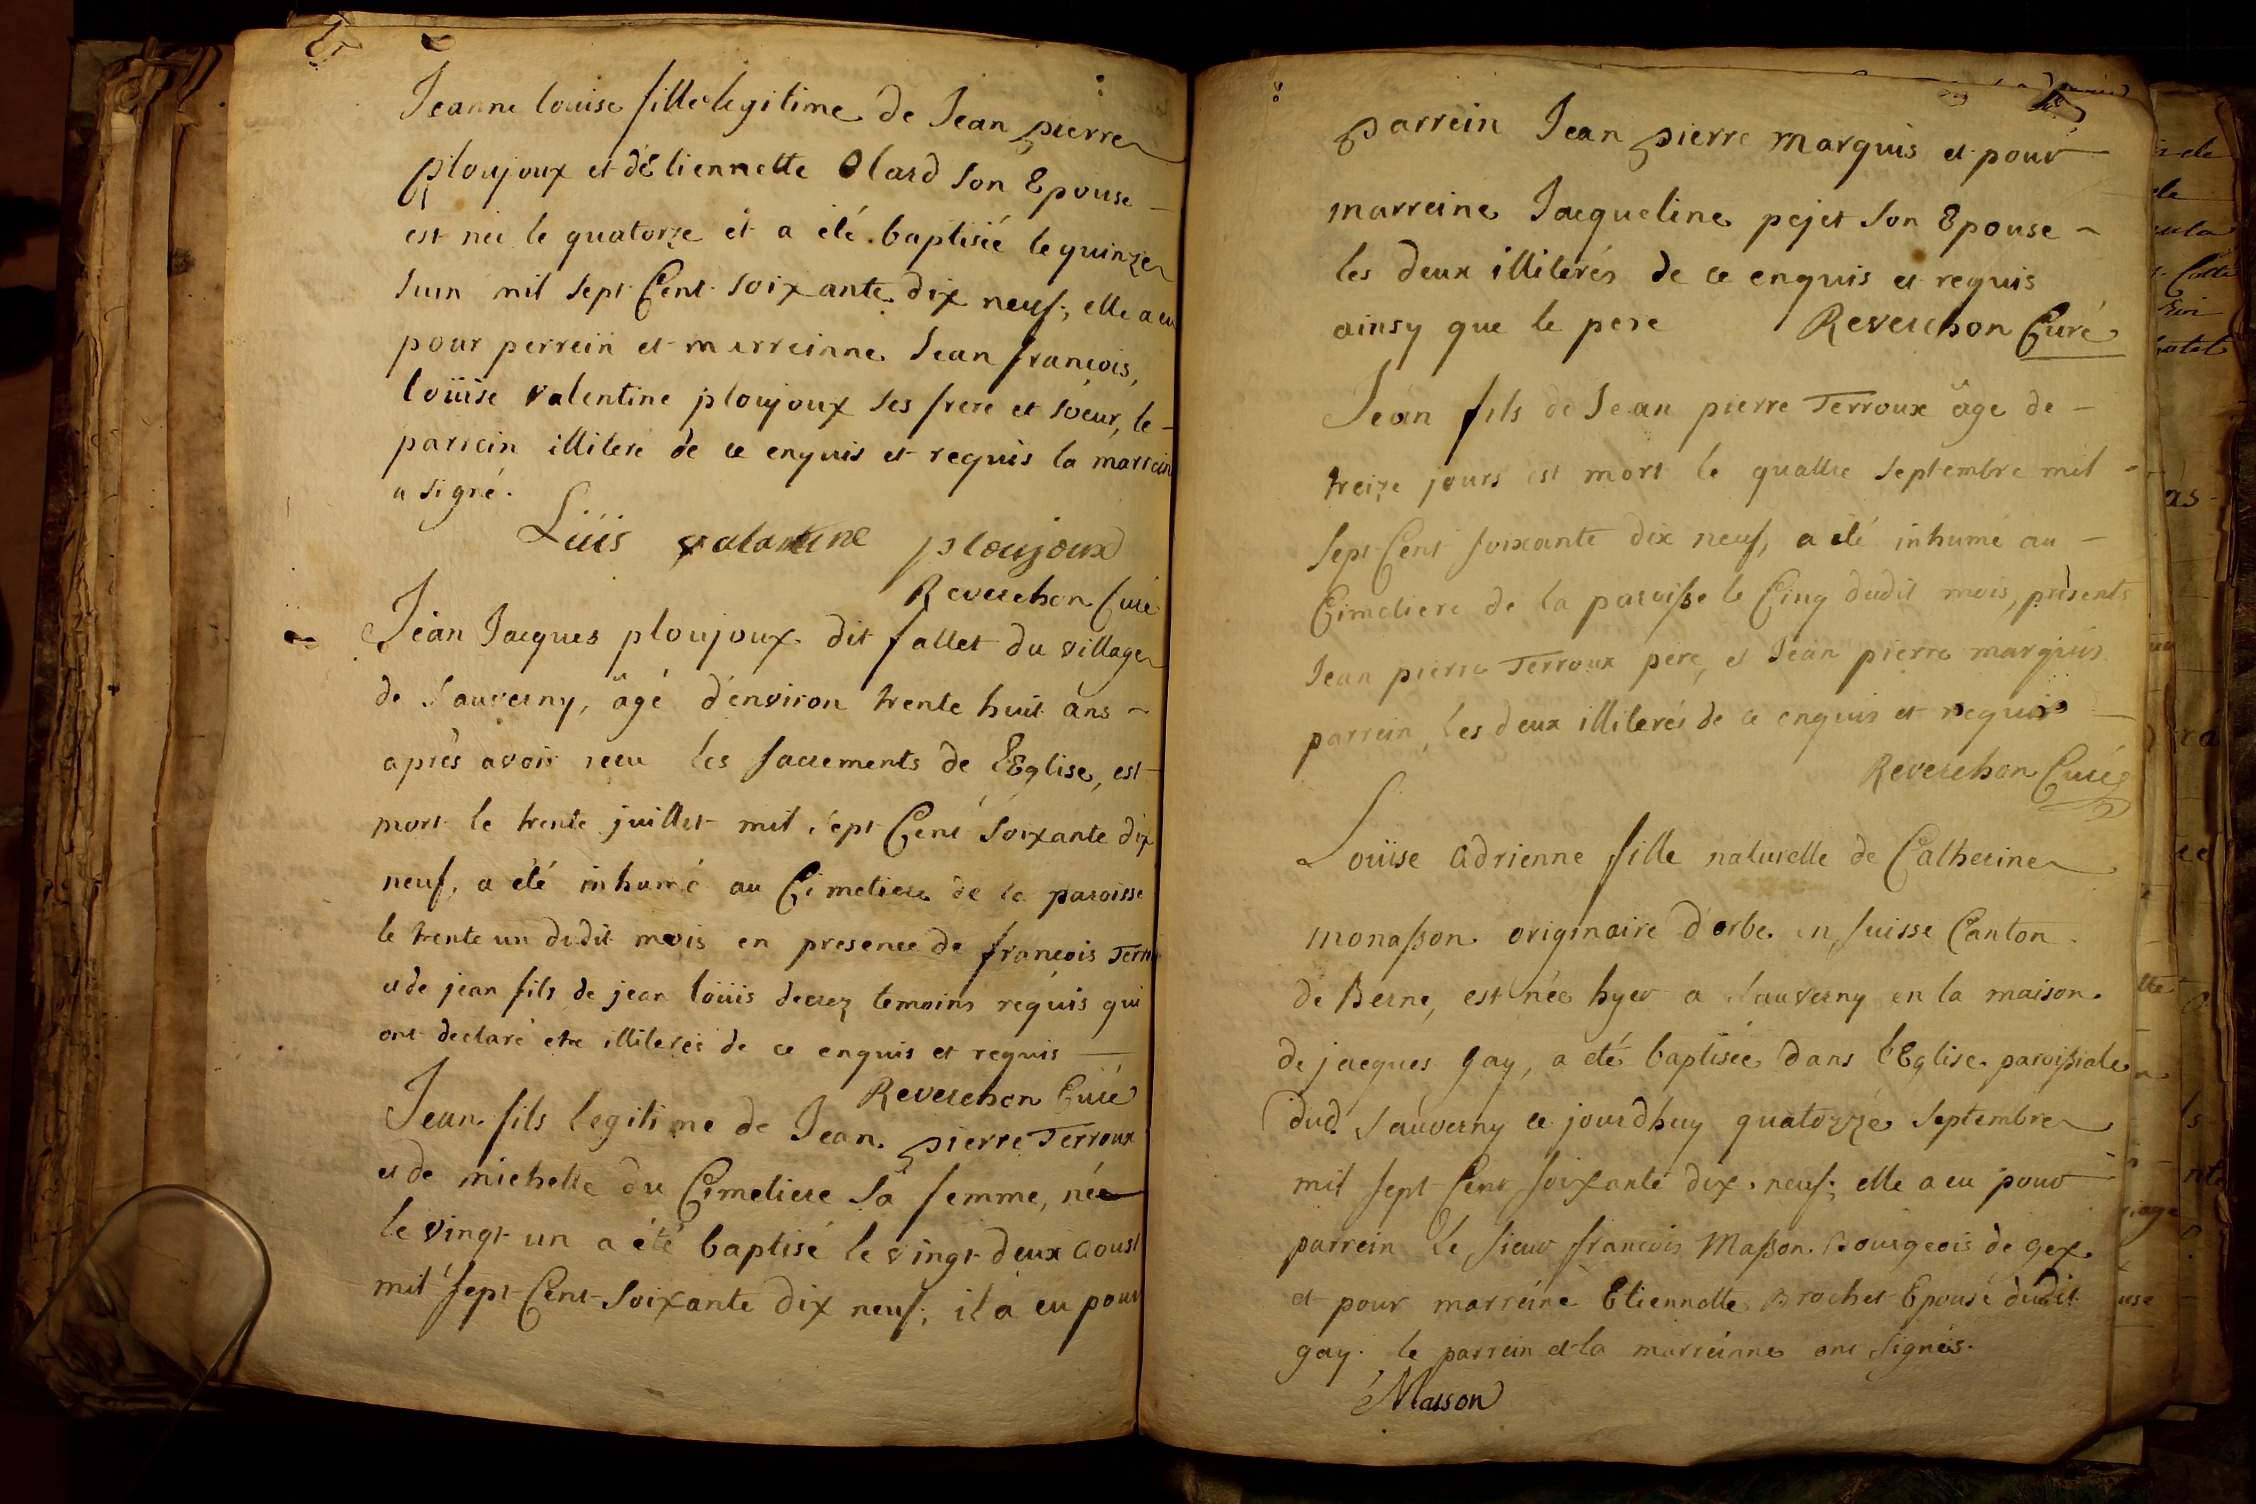 Jeanne louise fille legitime de Jean pierre
ploujoux et d'Etiennette Olard son Epouse
est neé le quatorze et a eté baptisée le quinze
Juin mil sept Cent soixante dix neuf; elle a eu
pour perrein et marreinne Jean françois,
loüise valentine ploujoux ses frere et soeur, le
parrein illiteré de ce enquis et requis la marrein
a signé.
Luis valantine ploujoux
Reverchon Curé
Jean Jacques ploujoux dit fallet du village
de Sauverny, âgé d'environ trente huit ans
après avoir recu les sacrements de l'Eglise, est
mort le trente juillet mil sept Cent soixante dix
neuf, a eté inhumé au Cimetiere de la paroisse
le trente un dudit mois en presence de françois Terr
et de jean fils de jean loüis decrez temoins requis qui
ont declaré etre illiterés de ce enquis et requis
Reverchon Curé
Jean fils legitime de Jean pierre Terroux
et de michelle du Cimetiere sa femme, née
le vingt un a été baptisé le vingt deux aoust
mil sept Cent soixante dix neuf; il a eu pour
parrein Jean pierre marquis et pour
marreine Jacqueline pejet son Epouse
les deux illiterés de ce enquis et requis
ainsy que le pere Reverchon Curé
Jean fils de Jean pierre Terroux âge de
treize jours est mort le quattre septembre mil
sept Cent soixante dix neuf, a eté inhumé au
Cimetiere de la paroisse le Cinq dudit mois, présents
Jean pierre Terroux pere, et Jean pierre marquis
parrein, les deux illiterés de ce enquis et requis
Reverchon Curé
Loüise adrienne fille naturelle de Catherine
monasson originaire d'orbe en suisse Canton
de Berne, est née hyer a Sauverny en la maison
de jacques gay, a eté baptisée dans l'Eglise paroissiale
dud. Sauverny ce jourdhuy quatorze septembre
mil sept Cent soixante dix neuf; elle a eu pour
parrein le sieur francois Masson Bourgeois de gex
et pour marreine Etiennette Brochet Epouse dudit
gay. le parrein et la marreinne ont signés.
Masson